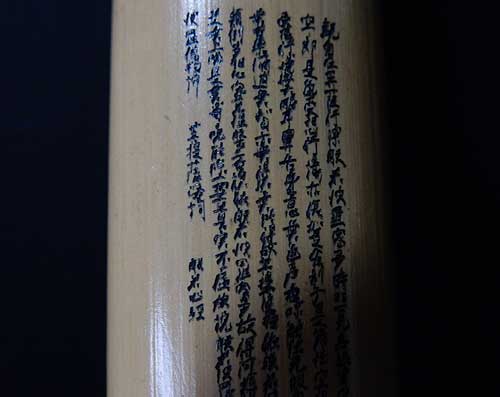 觀自在菩薩行深般若波羅蜜多時照見五蘊皆
空即是色受想行識亦復如是舍利子是諸法空
受想行識無眼耳鼻舌身意無色聲香味觸法無眼界
苦集滅道無智亦無得以無所得故菩提薩埵依般若
顛倒夢想究竟涅槃三世諸佛依般若波羅蜜多故得阿耨
咒是無等等咒能除一切苦真實不虛故說般若波羅
波羅僧揭諦 菩提薩婆訶 般若心經